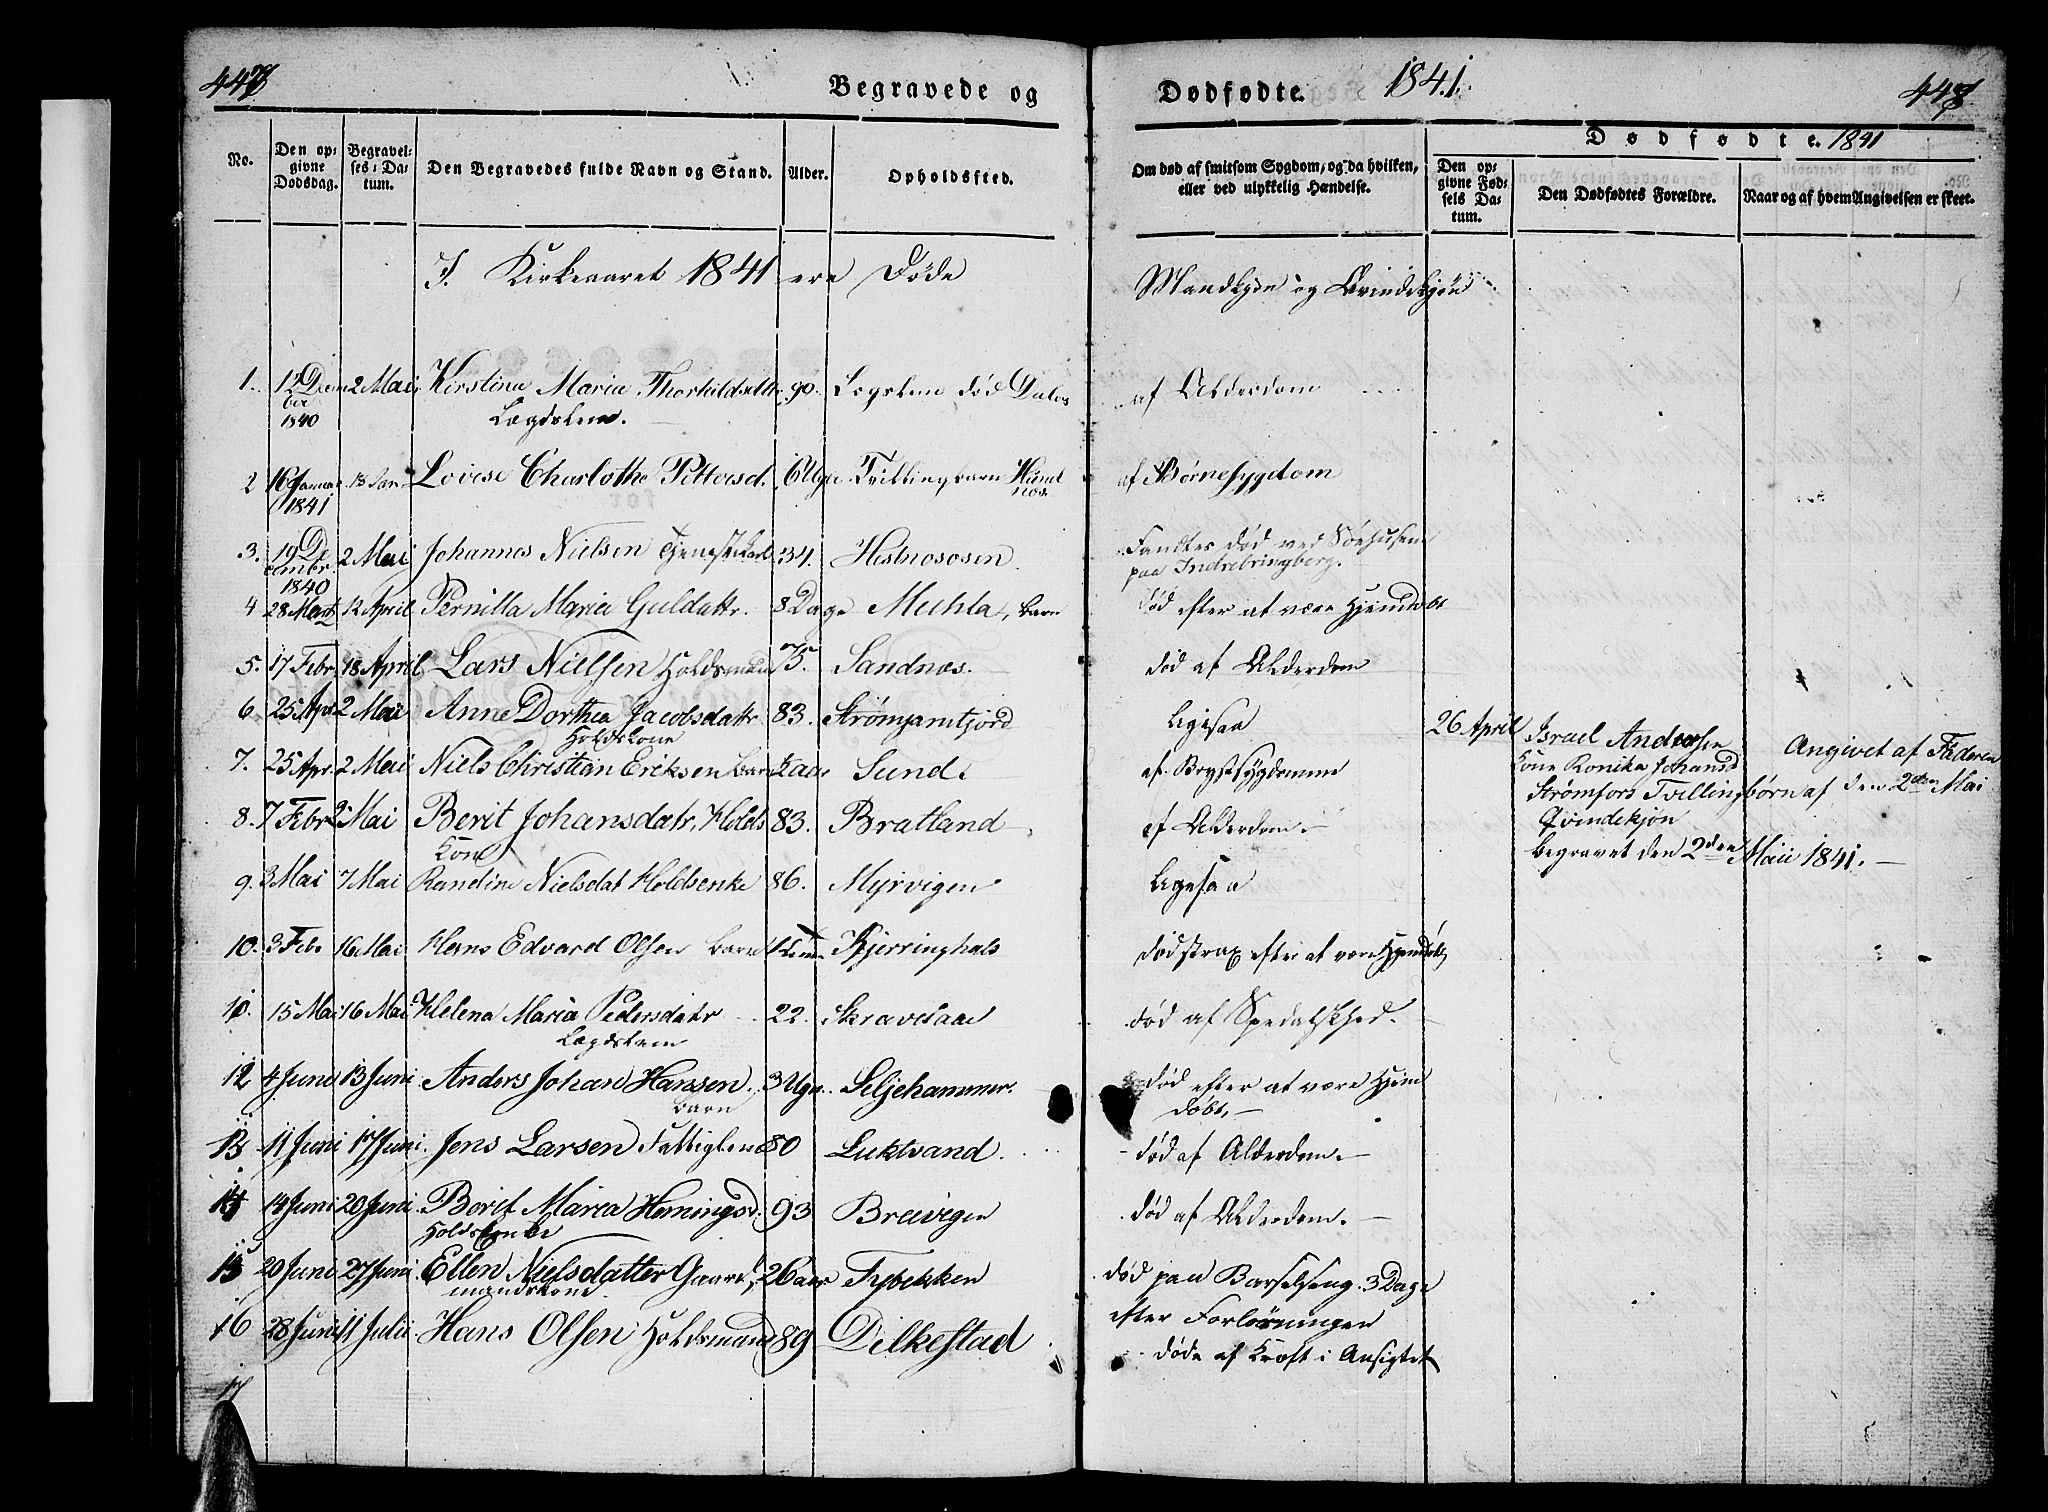 447
Begravede og
Dødfødte.
1841.
448
No.
Den opgivne Dødsdag.
Begravelses-Datum.
Den Begravedes fulde Navn og Stand.
Alder.
Opholdssted.
Om død af smitsom Sygdom, og da hvilken, eller ved ulykkelig Hændelse.
Dødfødte. 1841
Den opgivne Fødsels Datum.
Den Dødfødtes Forældre.
Naar og af hvem Angivelsen er skeet.
I Kirkeaaret 1841 ere Døde
Mandkjøn og Qvindekjøn
1. 12 Decem 2 Mai Kirstina Maria Thorkildsdtr 90. Lægslem død Dalen af Alderdom
ber
1840 Lægdslem.
2 16 Januar 18 Jan Lovise Charlotha Pettersd. 6 Uger Tvillingbarn Hundnæs af Børnesygdom
1841
3. 19 De 2 Mai Johannes Nielsen Tjenestekarl 34. Hestnesosen Fandtes død ved Søehusene
cembr. paa Indrebringberg.
1840
4 28 Marts 12 April Pernilla Maria Guldattr. 8 Dage Muhla, Barn død efter at være Hjemdøbt
5. 17 Febr 18 April Lars Nielsen Holdsmand 75. Sandnæs. død af Alderdom
6. 25 Apr 2 Mai Anne Dorthea Jacobsdatr 83. Strømjamtjord Ligesaa
Holdskone
7. 25 Apr. 2 Mai Niels Christian Eriksen Barn aar Sund. af Brystsygdomme
8. 7 Febr 2 Mai Berit Johansdatr. Holds 83. Bratland af Alderdom.
Kone
9. 3 Mai 7 Mai Randine Nielsdat Holdsenke 86. Myrvigen Ligesaa
10. 3 Febr 16 Mai Hans Edvard Olsen Barn Kjerringhals død strax efter at være Hjemdøbt
11. 15 Mai 16 Mai Helena Maria Pedersdatr 22. Skravelaae død af Spedalskhed.
Lægdslem
12 4 Juni 13 Juni Anders Johan Hanssen 3 Uger. Seljehammer. død efter at være Hjem
Barn døbt.
13 11 Juni 17 Juni. Jens Larsen Fattiglem 80 Luktvand død af Alderdom.
14 14 Juni 20 Juni Berit Marea Hemingsd. 93 Breivigen død af Alderdom.
Holdsenke
15 20 Juni 27 Juni Ellen Nielsdatter Gaard 26 aar Fybekken død paa Barselseng. 3 Dage
mandskone. efter Forløsningen
16 28 Juni 11 Julii Hans Olsen Holdsmand 89 Dilkestad døde af Kræft i Ansigtet
17
26 April Israel Andersen
Kone Ronika Johansd
Strømfors Tvillingbørn
Qvindekjøn
Begravet den 2den Mai 1841.
Angivet af Faderen
af den 2den Mai